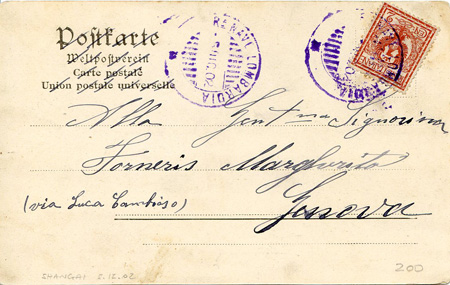 Postkarte
Weltpostverein
Carte postale
Union postale universelle
R. NAVE LOMBARDIA
Alla Gent ma Signorina
Forneris Margherita
(via Luca Cambioso)
Genova
SHANGAI 5.12.02
200